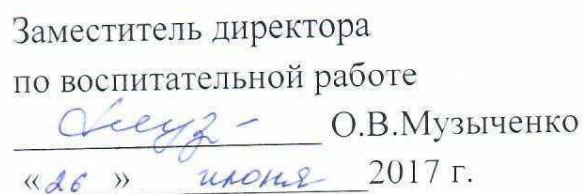 Заместитель директора
по воспитательной работе
О.В.Музыченко
«26 » июня 2017 г.